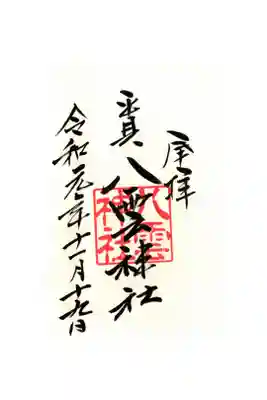 奉拝
八雲神社
八雲
神社
令和元年十一月十九日